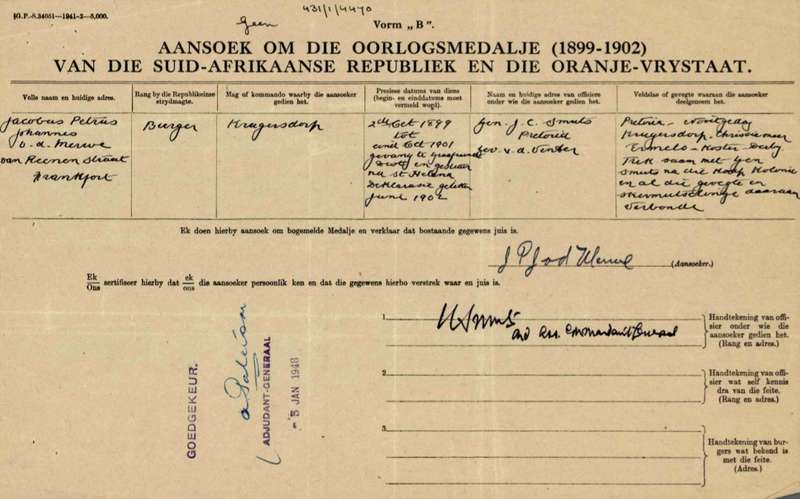 [G.P.-S.34051—1941-2—5,000.
431/1/4470
Geen
Vorm „B".
AANSOEK OM DIE OORLOGSMEDALJE (1899-1902)
VAN DIE SUID-AFRIKAANSE REPUBLIEK EN DIE ORANJE-VRYSTAAT.
Volle naam en huidige adres.
Rang by die Republikeinse strydmagte.
Mag of kommando waarby die aansoeker gedien het.
Presiese datums van diens (begin- en einddatums moet vermeld word).
Naam en huidige adres van offisiere onder wie die aansoeker gedien het.
Veldslae of gevegte waaraan die aansoeker deelgeneem het.
Jacobus Petrus
Johannes
v.d. Merwe
van Reenen straat
Frankfort
Burger
Krugersdorp
2de Oct 1899
tot
Oct 1901
gevang te
en gestuur
na St Helena
Deklarasie geteken
Junie 1902
Gen. J. C. Smuts
Pretoria
Gev. v.d. Venter
Pretoria – Nooitgedag
Krugersdorp. Chrissiemeer
Ermelo – Koster – Derby
Trek saam met Gen
Smuts na die Kaap Kolonie
en al die gevegte en
skermutselinge daaraan
Verbonde
Ek doen hierby aansoek om bogemelde Medalje en verklaar dat bostaande gegewens juis is.
J P J v d Merwe
(Aansoeker.)
Ek/Ons sertifiseer hierby dat ek/ons die aansoeker persoonlik ken en dat die gegewens hierbo verstrek waar en juis is.
1
JCSmuts
Handtekening van offisier onder wie die aansoeker gedien het. (Rang en adres.)
2
Handtekening van offisier wat self kennis dra van die feite. (Rang en adres.)
3
Handtekening van burgers wat bekend is met die feite. (Adres.)
GOEDGEKEUR.
ADJUDANT-GENERAAL
- 5 JAN 1948